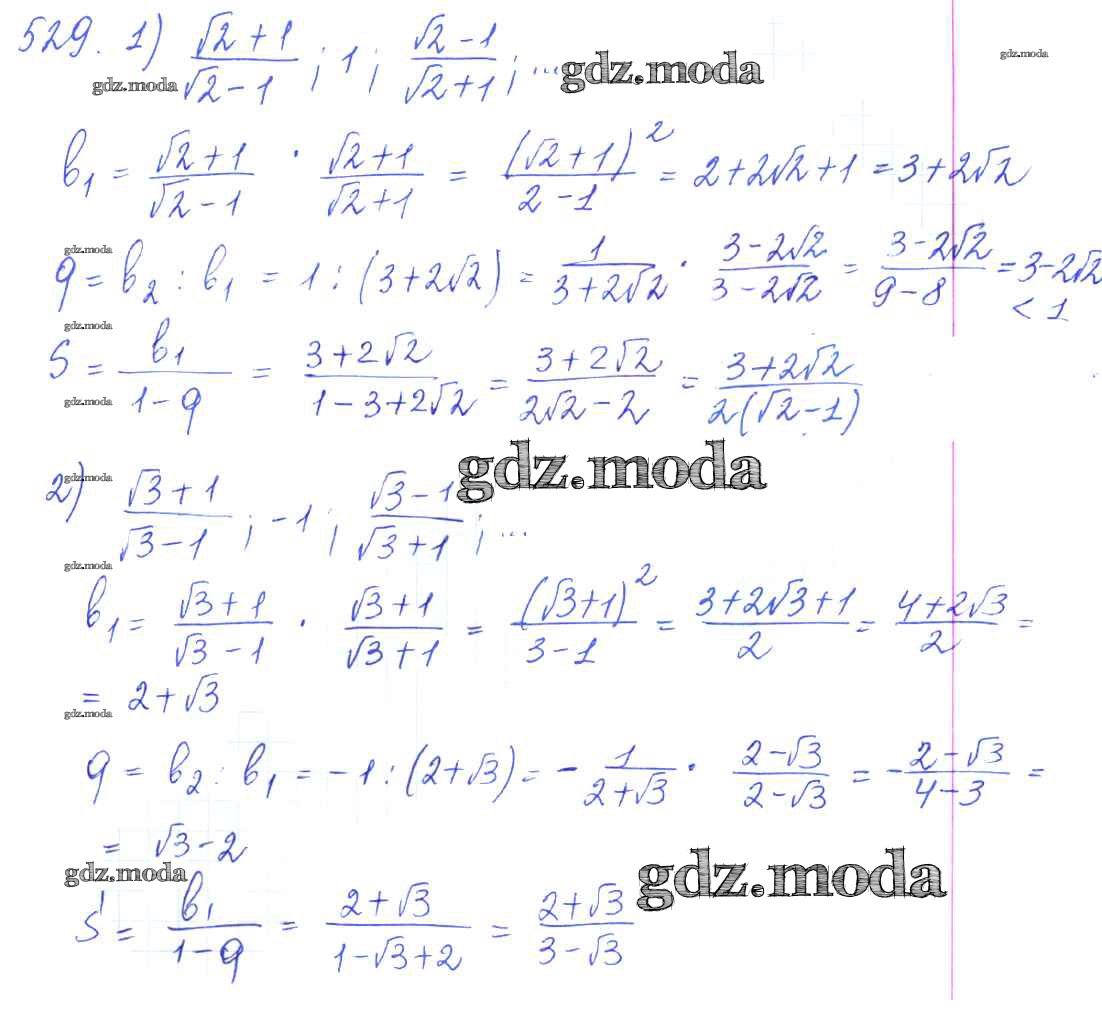 529. 1) (√2+1)/(√2-1); 1; (√2-1)/(√2+1); ... gdz.moda gdz.moda
gdz.moda
b₁ = (√2+1)/(√2-1) · (√2+1)/(√2+1) = (√2+1)²/(2-1) = 2+2√2+1 = 3+2√2
gdz.moda
q = b₂ : b₁ = 1 : (3+2√2) = 1/(3+2√2) · (3-2√2)/(3-2√2) = (3-2√2)/(9-8) = 3-2√2
< 1
gdz.moda
S = b₁/(1-q) = (3+2√2)/(1-3+2√2) = (3+2√2)/(2√2-2) = (3+2√2)/(2(√2-1))
gdz.moda
gdz.moda
gdz.moda
2) (√3+1)/(√3-1); -1; (√3-1)/(√3+1); ...
gdz.moda
b₁ = (√3+1)/(√3-1) · (√3+1)/(√3+1) = (√3+1)²/(3-1) = (3+2√3+1)/2 = (4+2√3)/2 =
= 2+√3
gdz.moda
q = b₂ : b₁ = -1 : (2+√3) = - 1/(2+√3) · (2-√3)/(2-√3) = - (2-√3)/(4-3) =
= √3-2
gdz.moda gdz.moda
S = b₁/(1-q) = (2+√3)/(1-√3+2) = (2+√3)/(3-√3)